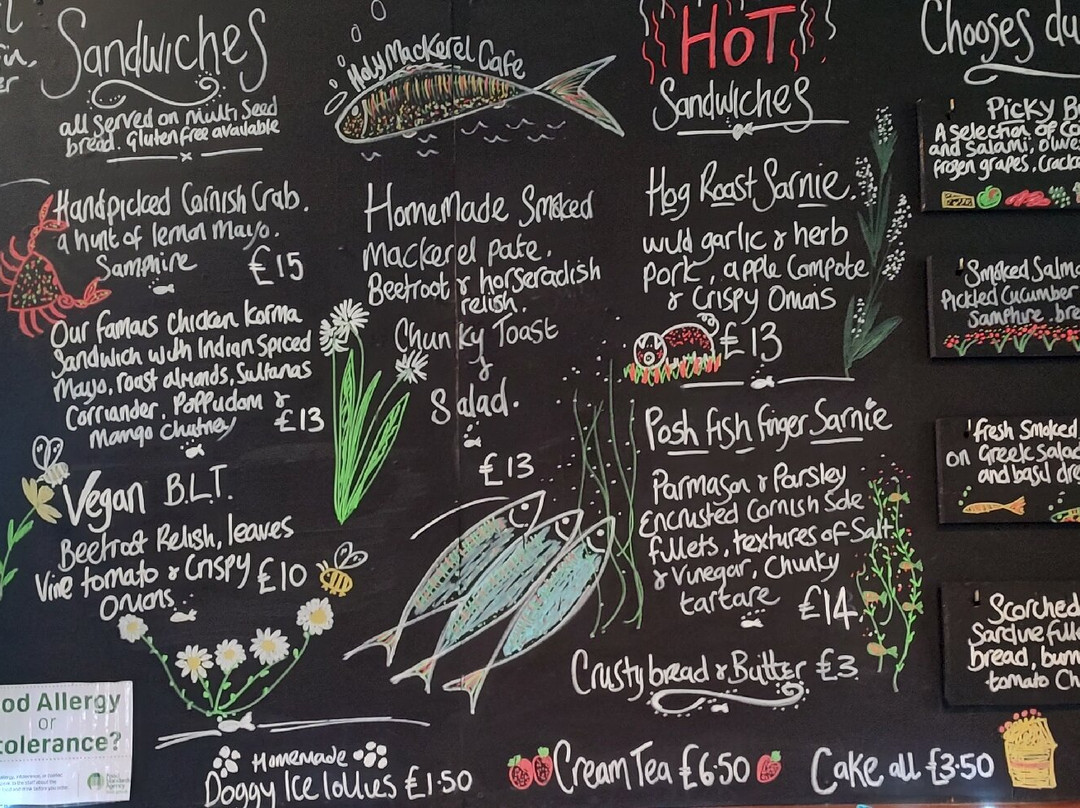 Sandwiches
all served on multi Seed
bread. Gluten free available
Handpicked Cornish Crab.
a hint of lemon Mayo.
Samphire £15
Our famous chicken Korma
Sandwich with Indian Spiced
Mayo, roast almonds, Sultanas
Corriander, Poppudom &
Mango Chutney £13
Vegan B.L.T.
Beetroot Relish, leaves
Vine tomato & Crispy £10
Onions
Holy Mackerel Cafe
Homemade Smoked
Mackerel Pate.
Beetroot & horseradish
relish.
Chunky Toast
&
Salad.
£13
HOT
Sandwiches
Hog Roast Sarnie.
wild garlic & herb
pork, apple Compote
& Crispy Onions
£13
Posh fish finger Sarnie
Parmasan & Parsley
Encrusted Cornish Sole
fillets, textures of Salt
& Vinegar, Chunky
tartare £14
Crusty bread & Butter £3.
Chooses du
Picky B
A selection of Co
and Salami, olives
frozen grapes, Cracke
Smoked Salmo
Pickled Cucumber
Samphire, bre
fresh Smoked
on Greek Salad
and basil dre
Scorched
Sardine fille
bread, burn
tomato Ch
od Allergy
or
tolerance?
Homemade
Doggy Ice lollies £1.50
Cream Tea £6.50
Cake all £3.50